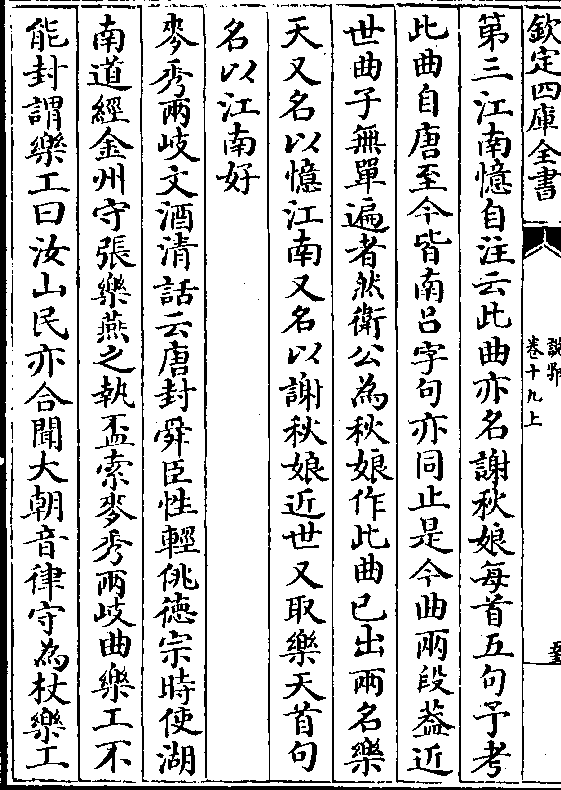 欽定四庫全書
說郛
卷十九上
第三江南憶自注云此曲亦名謝秋娘每首五句予考
此曲自唐至今皆南呂字句亦同止是今曲兩段葢近
世曲子無單遍者然衛公為秋娘作此曲已出兩名樂
天又名以憶江南又名以謝秋娘近世又取樂天首句
名以江南好
麥秀兩岐文酒清話云唐封舜臣性輕佻徳宗時使湖
南道經金州守張樂燕之執盃索麥秀兩岐曲樂工不
能封謂樂工曰汝山民亦合聞大朝音律守為杖樂工